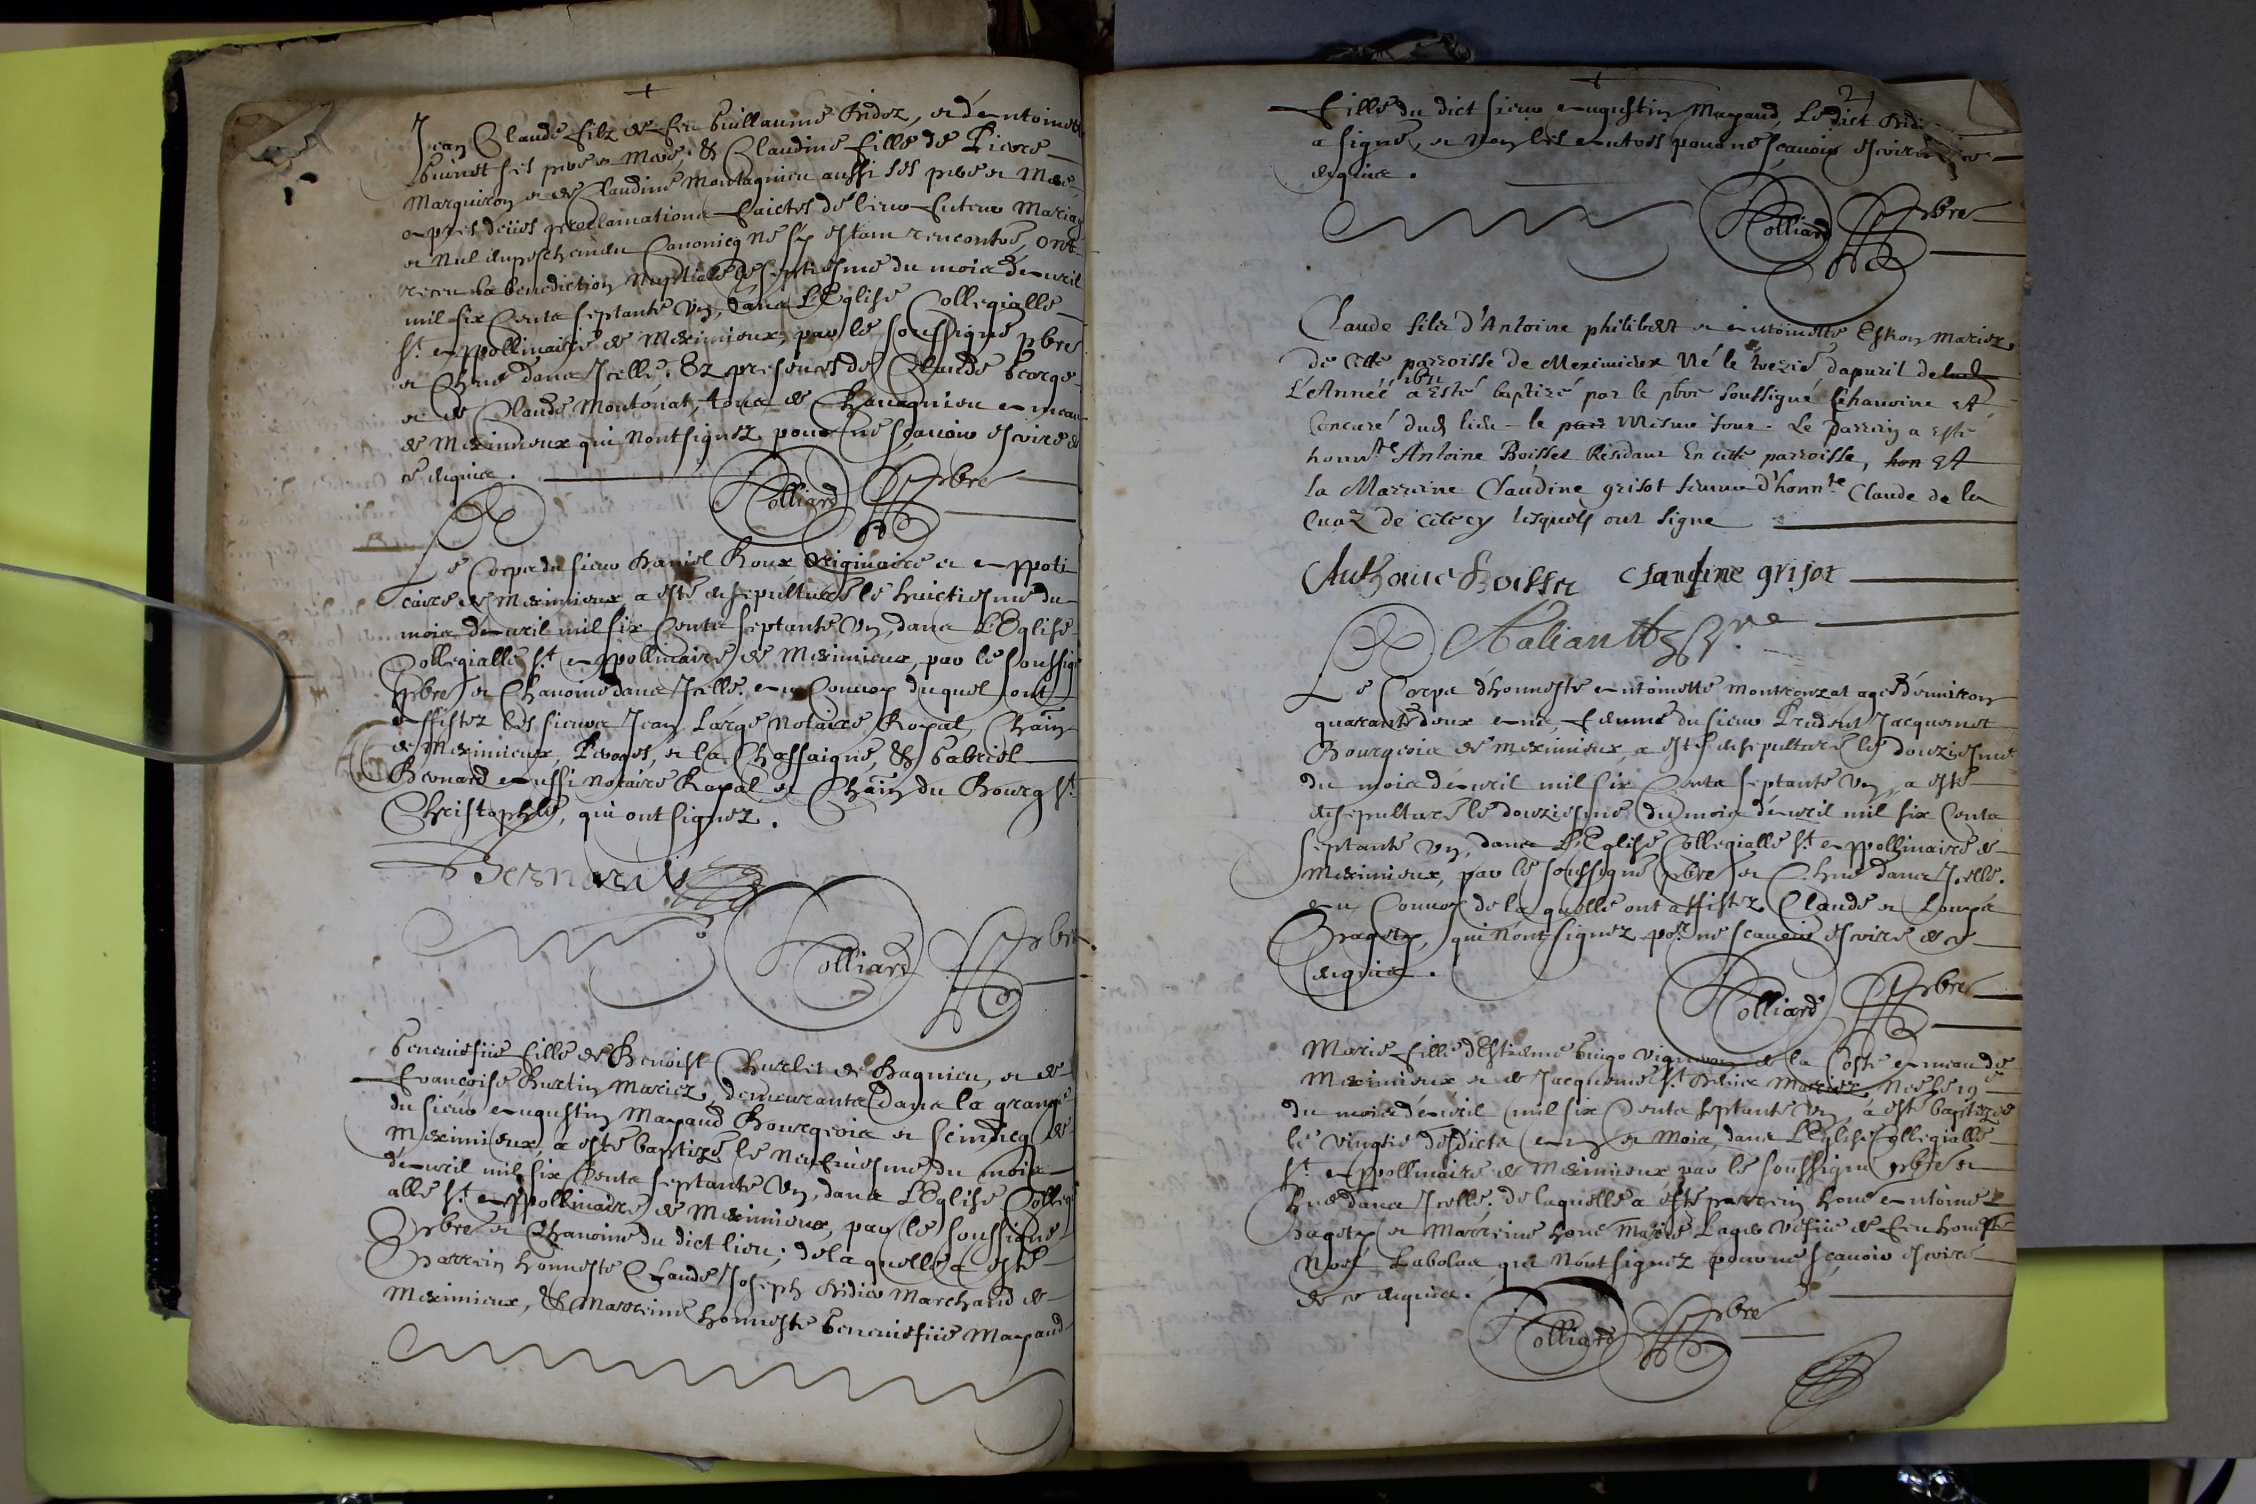 Jean Claude filz de feu Guillaume Ridoz, et d'Antoinette
Guinet ses pere et Mere; & Claudine fille de Pierre
Marquiron et de Claudine Montagnieu aussi ses pere et Mere
apres deües proclamations faictes de leur futeur Mariage
et Nul empeschement Canonicq ne s'y estant rencontré, ont
receu la benediction Nuptiale le septiesme du mois d'Avril
mil six Cents septante Un, dans L'Eglise Collegialle
St. Appollinaire de Meximieux, par le soussigné pbre
et Chne dans Jcelle. Ez presences de Claude George
et de Claude Montonat, tous de Chavagnieu en meau
de Meximieux qui n'ont signez pour ne sçavoir escrire de
ce enquis.
Folliard pbre
Le Corps du sieur Daniel Roux Originaire et Appoti
caire de Meximieux a esté ensepulturé le huictiesme du
mois d'Avril mil six Cents septante Un, dans L'Eglise
Collegialle St. Appollinaire de Meximieux, par le soussigé
Pbre et Chanoine dans Jcelle. Au Convoy duquel ont
assistez les sieurs Jean Large Notaire Royal, Chain
de Meximieux, Peroges, et la Chassaigne, & Gabriel
Bernard Aussi Notaire Royal et Chain du Bourg St.
Christophle, qui ont signez.
Bernard
Folliard pbre
Geneviefve fille de Benoist Churlet de Bagnieu, et de
Françoise Burtin Mariez, demeurants dans la grange
du sieur Augustin Mayaud Bourgeois et scindicq de
Meximieux, a esté baptizé le Neufviesme du mois
d'Avril mil six Cents septante Un, dans L'Eglise Collegi
alle St. Appollinaire de Meximieux, par le soussigné
Pbre et Chanoine du dict lieu; de laquelle a esté
Parrein honneste Claude Joseph Ridier Marchand de
Meximieux, & Marreine honneste Geneviefve Mayaud
2
fille du dict sieur Augustin Mayaud, Le dict Ridier
a signé, et non les Autres pour ne sçavoir escrire
enquis.
Folliard pbre
Claude filz d'Antoine philibert et Antoinette Mariez
de cette parroisse de Meximieux Né le trezie d'apvril de
L'Année 1671 a esté baptizé par le pbre soussigné Chanoine et
Concuré dud lieu le mesme jour. Le parrein a esté
honnte Antoine Boisset Residant En cette parroisse, hon et
la Marreine Claudine grisot femme d'honnte Claude de la
Cuaz de cilecy lesquels ont signe
Anthoine Boisset Claudine grisot
Le Corps d'honneste Antoinette Montrouzat agee d'environ
quarante deux Ans, femme du sieur Prudent Jacquemet
Bourgeois de Meximieux, a esté ensepulturé le douziesme
du mois d'Avril mil six Cents septante Un, a esté
ensepulturé le douziesme du mois d'Avril mil six Cents
septante Un, dans L'Eglise Collegialle St. Appollinaire de
Meximieux, par le soussigné pbre et Chne dans Jcelle.
Au Convoy de laquelle ont assistez Claude et Loups
Pragetz, qui n'ont signez por. ne scavoir escrire de ce
enquis.
Folliard pbre
Marie fille d'Estienne Guigo Vigneron de la Coste en meau de
Meximieux et de Jacqueme St. Mariez, Née le 19e
du mois d'Avril mil six Cents septante Un, a esté baptizée
le vingtie desdicts An et Mois, dans L'Eglise Collegialle
St. Appollinaire de Meximieux par le soussigné pbre et
Chne dans Jcelle. de laquelle a esté parrein hone Antoine
Pragetz et Marreine hone Marie Lager vefve de feu honeste
Noel Labolas, qui n'ont signez pour ne sçavoir escrire
de ce enquis.
Folliard pbre